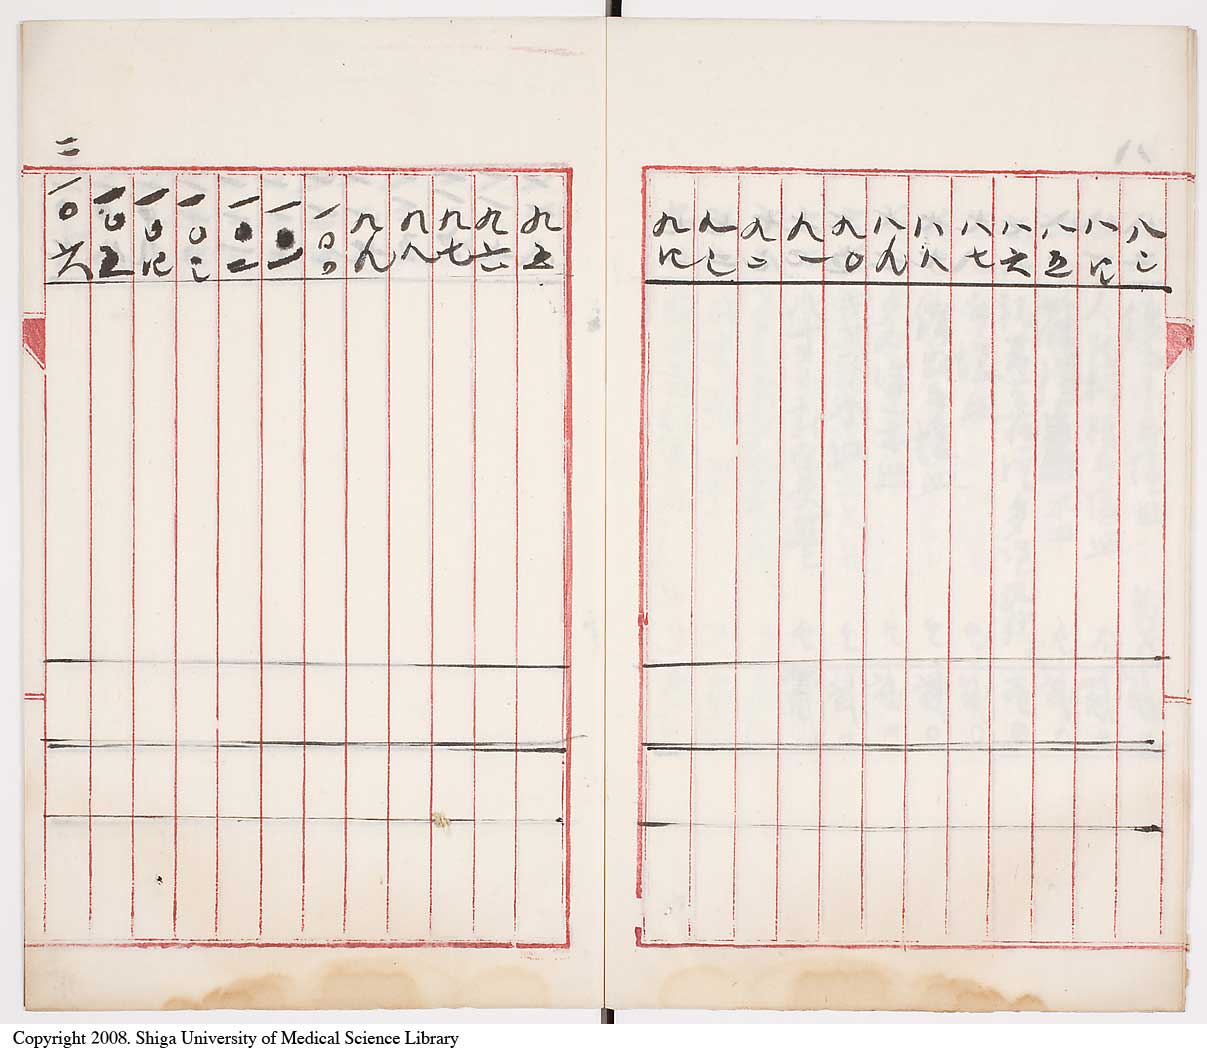 八三
八四
八五
八六
八七
八八
八九
九〇
九一
九二
九三
九四
九五
九六
九七
九八
九九
一〇〇
一〇一
一〇二
一〇三
一〇四
一〇五
一〇六
二
Copyright 2008. Shiga University of Medical Science Library